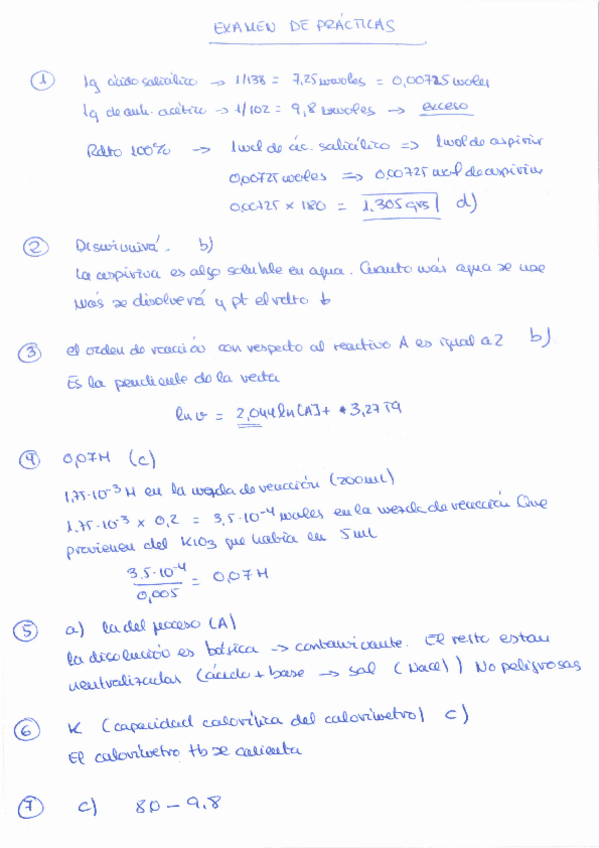 EXAMEN DE PRÁCTICAS
1 1g ácido salicílico → 1/138 = 7,25 mmoles = 0,00725 moles
1g de anh. acético → 1/102 = 9,8 mmoles → exceso
Rdto 100% → 1 mol de ác. salicílico ⇒ 1 mol de aspirina
0,00725 moles ⇒ 0,00725 mol de aspirina
0,00725 × 180 = 1,305 grs d)
2 Disminuirá. b)
La aspirina es algo soluble en agua. Cuanto más agua se use
más se disolverá y pt el rdto b
3 el orden de reacción con respecto al reactivo A es igual a 2 b)
Es la pendiente de la recta
ln v = 2,044 ln [A] + 3,2759
4 0,07M (c)
1,75·10⁻³ M en la mezcla de reacción (200ml)
1.75·10⁻³ × 0,2 = 3,5·10⁻⁴ moles en la mezcla de reacción Que
provienen del KIO₃ que había en 5ml
3,5·10⁻⁴
= 0,07M
0,005
5 a) la del proceso (A)
la disolución es básica → contaminante. El resto están
neutralizadas (ácido + base → sal (NaCl)) No peligrosas
6 K (capacidad calorífica del calorímetro) c)
El calorímetro tb se calienta
7 c) 80 - 9,8